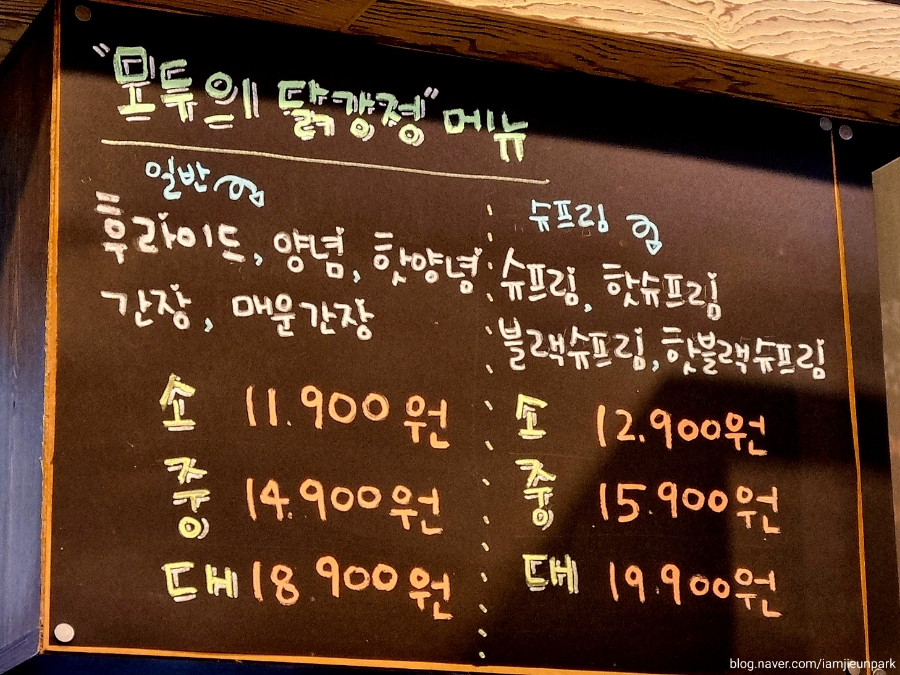 "모두의 닭강정" 메뉴
일반
후라이드, 양념, 핫양념
간장, 매운간장
소 11.900원
중 14.900원
대 18.900원
슈프림
슈프림, 핫슈프림
블랙슈프림, 핫블랙슈프림
소 12.900원
중 15.900원
대 19.900원
blog.naver.com/iamjieunpark